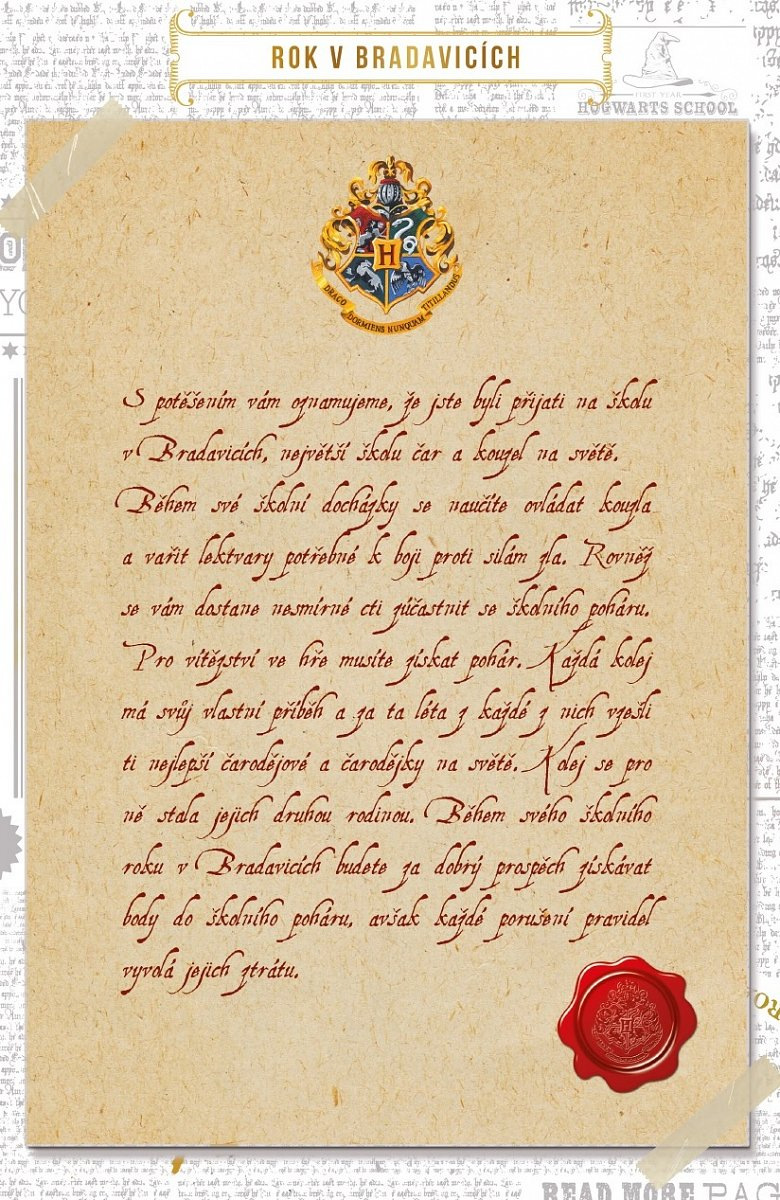 ROK V BRADAVICÍCH
FIRST YEAR
HOGWARTS SCHOOL
H
DRACO DORMIENS NUNQUAM TITILLANDUS
S potěšením vám oznamujeme, že jste byli přijati na školu
v Bradavicích, největší školu čar a kouzel na světě.
Během své školní docházky se naučíte ovládat kouzla
a vařit lektvary potřebné k boji proti silám zla. Rovněž
se vám dostane nesmírné cti zúčastnit se školního poháru.
Pro vítězství ve hře musíte získat pohár. Každá kolej
má svůj vlastní příběh a za ta léta z každé z nich vzešli
ti nejlepší čarodějové a čarodějky na světě. Kolej se pro
ně stala jejich druhou rodinou. Během svého školního
roku v Bradavicích budete za dobrý prospěch získávat
body do školního poháru, avšak každé porušení pravidel
vyvolá jejich ztrátu.
H
READ MORE PAG